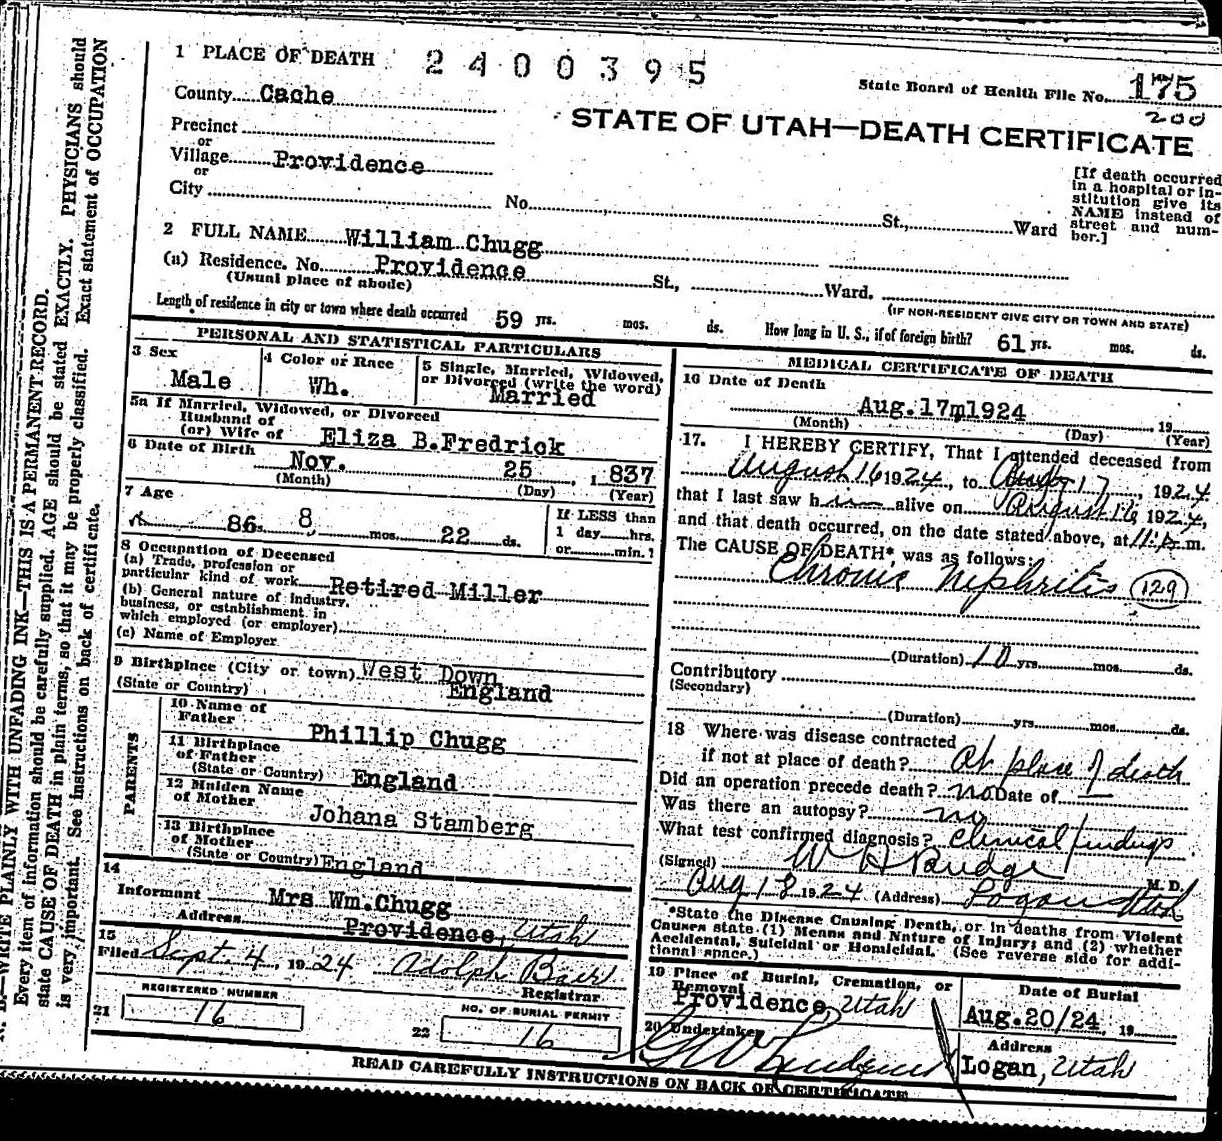 1 PLACE OF DEATH 2400395
State Board of Health File No. 175
200
County Cache
STATE OF UTAH—DEATH CERTIFICATE
Precinct
or
Village Providence
or
City No. St., Ward
[If death occurred
in a hospital or in-
stitution give its
NAME instead of
street and num-
ber.]
2 FULL NAME William Chugg
(a) Residence. No. Providence St., Ward.
(Usual place of abode)
(IF NON-RESIDENT GIVE CITY OR TOWN AND STATE)
Length of residence in city or town where death occurred 59 yrs. mos. ds. How long in U. S., if of foreign birth? 61 yrs. mos. ds.
PERSONAL AND STATISTICAL PARTICULARS
3 Sex
Male
4 Color or Race
Wh.
5 Single, Married, Widowed,
or Divorced (write the word)
Married
5a If Married, Widowed, or Divorced
Husband of
(or) Wife of Eliza B.Fredrick
6 Date of Birth
Nov. 25 , 1837
(Month) (Day) (Year)
7 Age
86 8 mos. 22 ds.
If LESS than
1 day hrs.
or min.?
8 Occupation of Deceased
(a) Trade, profession or
particular kind of work Retired Miller
(b) General nature of industry,
business, or establishment in
which employed (or employer)
(c) Name of Employer
9 Birthplace (City or town) West Down
(State or Country) England
PARENTS
10 Name of
Father Phillip Chugg
11 Birthplace
of Father
(State or Country) England
12 Maiden Name
of Mother Johana Stamberg
13 Birthplace
of Mother
(State or Country) England
14
Informant Mrs Wm.Chugg
Address Providence, Utah
15
Filed Sept. 4, 1924 Adolph Baer
Registrar
REGISTERED NUMBER
21 16
NO. OF BURIAL PERMIT
22 16
MEDICAL CERTIFICATE OF DEATH
16 Date of Death
Aug.17m1924 19
(Month) (Day) (Year)
17. I HEREBY CERTIFY, That I attended deceased from
August 16 1924, to Aug 17, 1924
that I last saw him alive on August 16 1924,
and that death occurred, on the date stated above, at 11:p.m.
The CAUSE OF DEATH* was as follows:
Chronic Nephritis 129
(Duration) 10 yrs. mos. ds.
Contributory
(Secondary)
(Duration) yrs. mos. ds.
18 Where was disease contracted
if not at place of death? At place of death
Did an operation precede death? no Date of —
Was there an autopsy? no
What test confirmed diagnosis? Clinical findings
(Signed) W H Budge M. D.
Aug 18, 1924 (Address) Logan Utah
*State the Disease Causing Death, or in deaths from Violent
Causes state (1) Means and Nature of Injury; and (2) whether
Accidental, Suicidal or Homicidal. (See reverse side for addi-
tional space.)
19 Place of Burial, Cremation, or
Removal
Providence, Utah
Date of Burial
Aug.20/24, 19
20 Undertaker
Address
Logan, Utah
READ CAREFULLY INSTRUCTIONS ON BACK OF CERTIFICATE
N. B.—WRITE PLAINLY WITH UNFADING INK—THIS IS A PERMANENT RECORD.
Every item of information should be carefully supplied. AGE should be stated EXACTLY. PHYSICIANS should
state CAUSE OF DEATH in plain terms, so that it may be properly classified. Exact statement of OCCUPATION
is very important. See instructions on back of certificate.